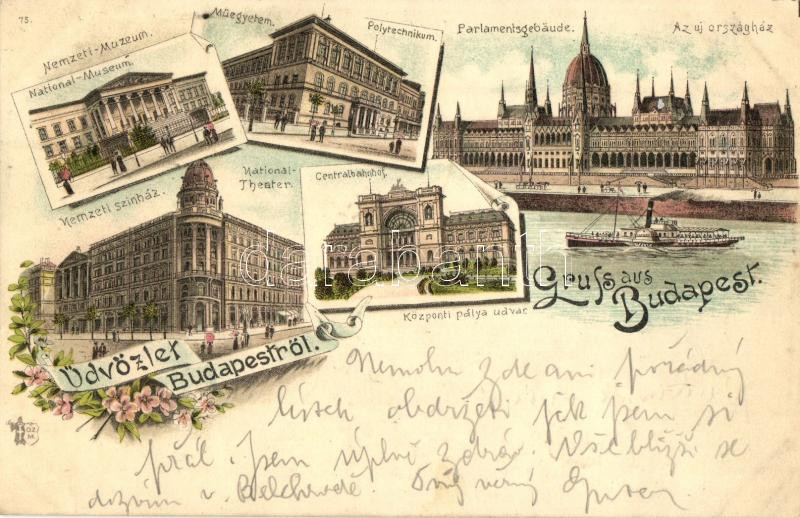 75.
Nemzeti-Muzeum.
National-Museum.
Müegyetem.
Polytechnikum.
Parlamentsgebäude. Az uj országház
Nemzeti szinház.
National-Theater.
Centralbahnhof.
Központi pálya udvar.
Gruss aus Budapest.
Üdvözlet Budapestről.
darabanth
Nemohu zde ani pořádný
lístek obdržeti jak jsem si
přál. Jsem úplně zdráv. Vše bližší se
dozvím v
Tvůj věrný